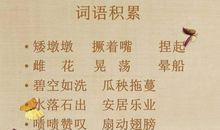 词语积累
· 矮墩墩 撅着嘴 捏起
· 雌花 晃荡 晕船
· 碧空如洗 瓜秧拖蔓
· 水落石出 安居乐业
· 啧啧赞叹 扇动翅膀